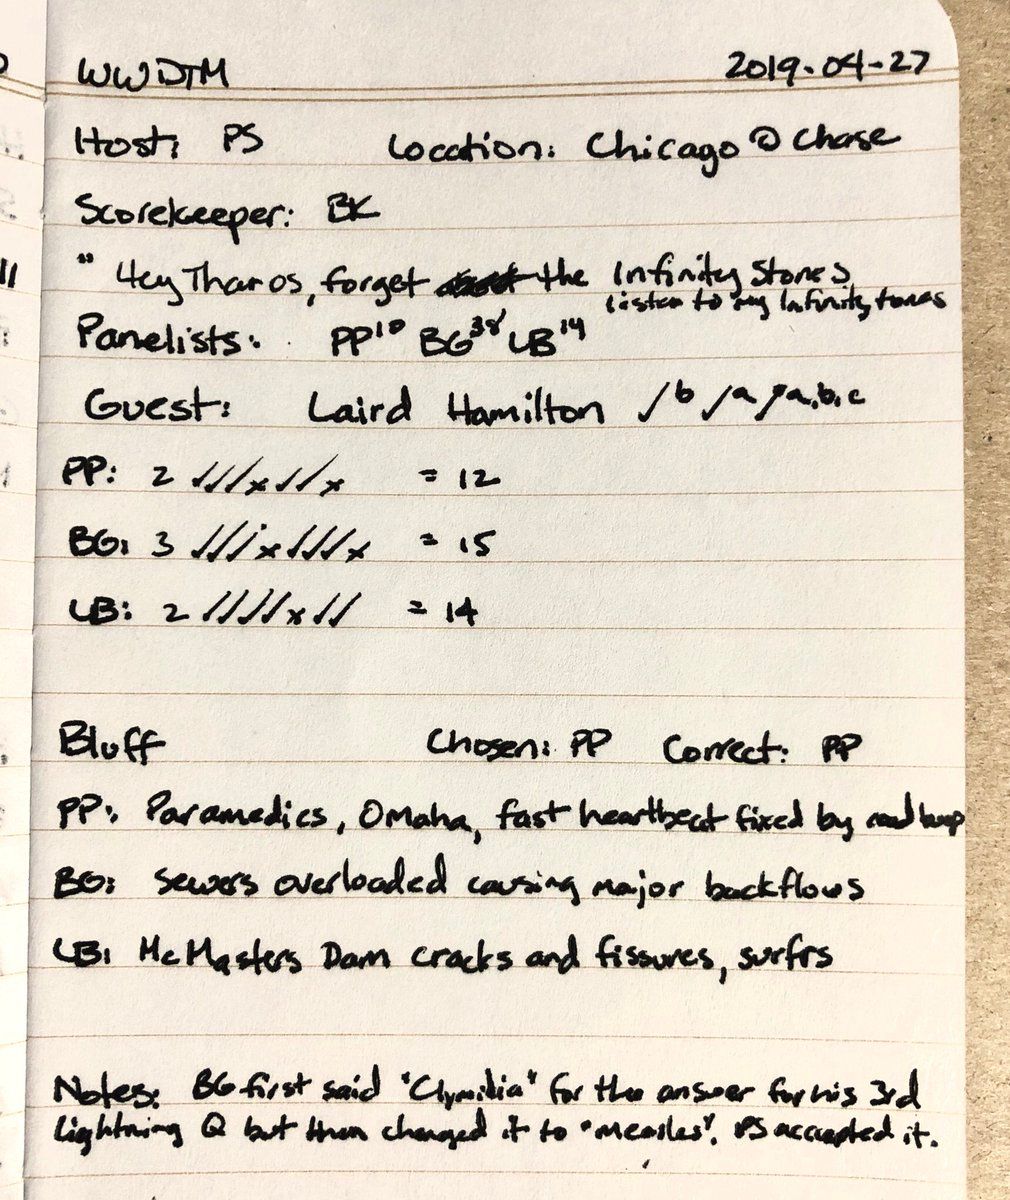 WWDTM 2019-04-27
Host: PS Location: Chicago @ Chase
Scorekeeper: BK
"Hey Thanos, forget the Infinity Stones
listen to my Infinity tones
Panelists: PP10 BG38 LB14
Guest: Laird Hamilton ✓b ✓a ✓a,b,c
PP: 2 ✓✓✓x✓✓x = 12
BG: 3 ✓✓✓x✓✓✓x = 15
LB: 2 ✓✓✓✓x✓✓ = 14
Bluff Chosen: PP Correct: PP
PP: Paramedics, Omaha, fast heartbeat fixed by road bump
BG: Sewers overloaded causing major backflows
LB: McMasters Dam cracks and fissures, surfrs
Notes: BG first said "Clymidia" for the answer for his 3rd
Lightning Q but then changed it to "measles". PS accepted it.